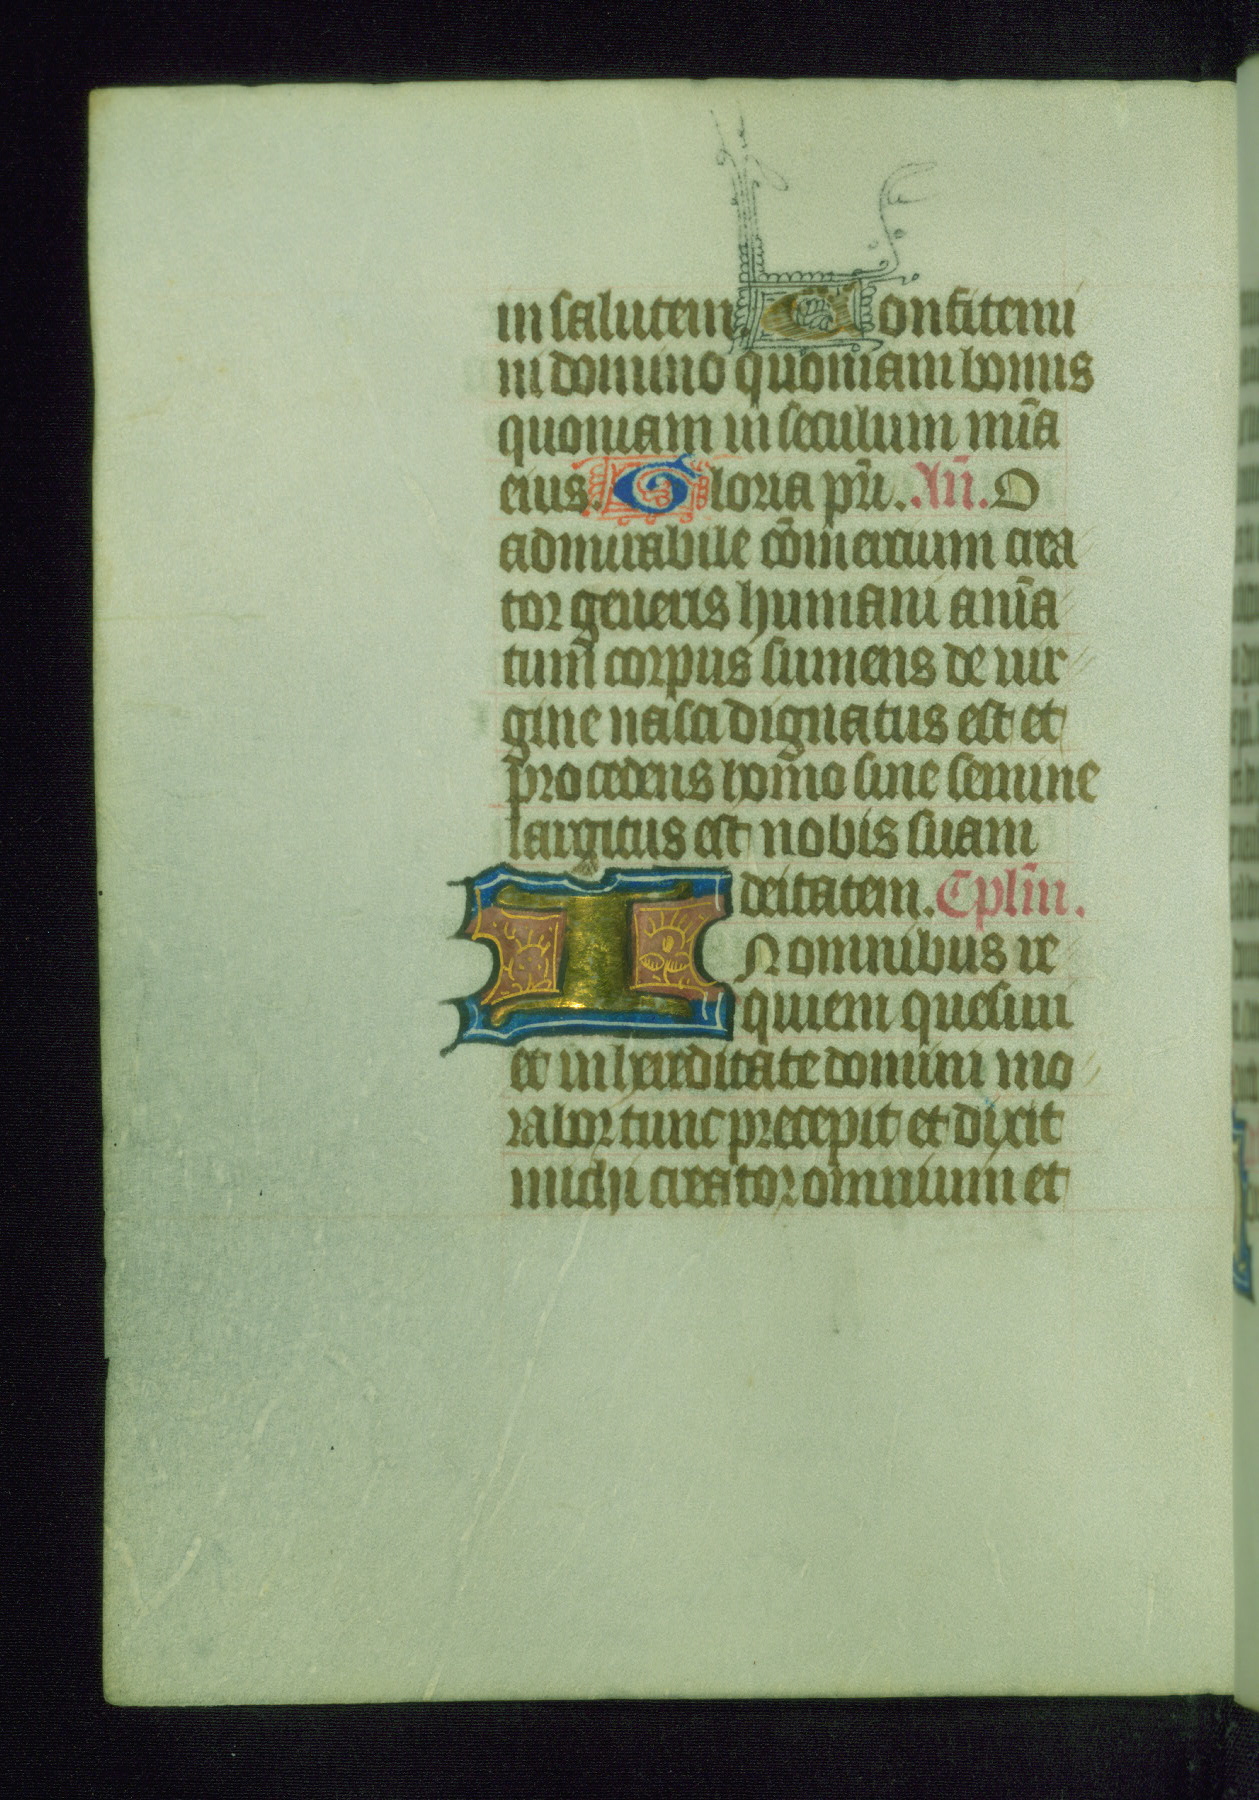 in salutem. Confitemi
ni domino quoniam bonus
quoniam in seculum mīa
eius. Gloria pr̄i. An̄. O
admirabile cōmercium crea
tor generis humani anīa
tum corpus sumens de vir
gine nasci dignatus est et
procedens homo sine semine
largitus est nobis suam
deitatem. Cplm̄.
IN omnibus re
quiem quesiui
et in hereditate domini mo
rabor tunc precepit et dixit
michi creator omnium et